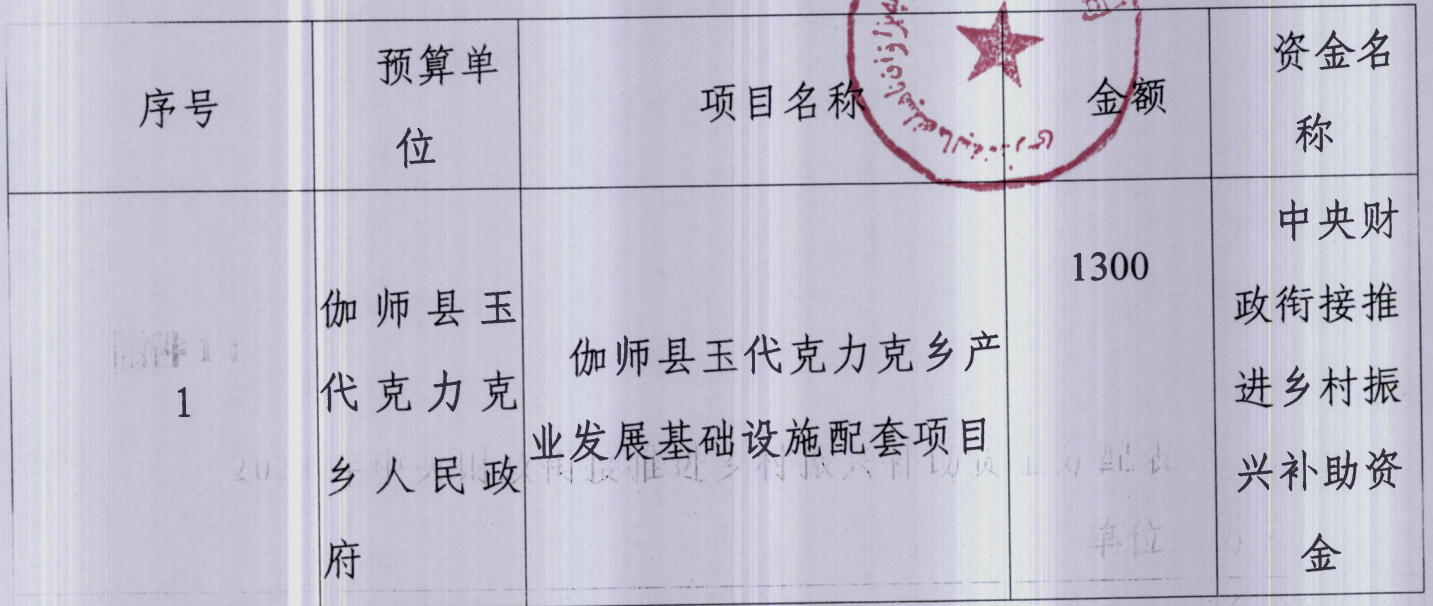 序号
预算单
位
项目名称
金额
资金名
称
1
伽师县玉
代克力克
乡人民政
府
伽师县玉代克力克乡产
业发展基础设施配套项目
1300
中央财
政衔接推
进乡村振
兴补助资
金